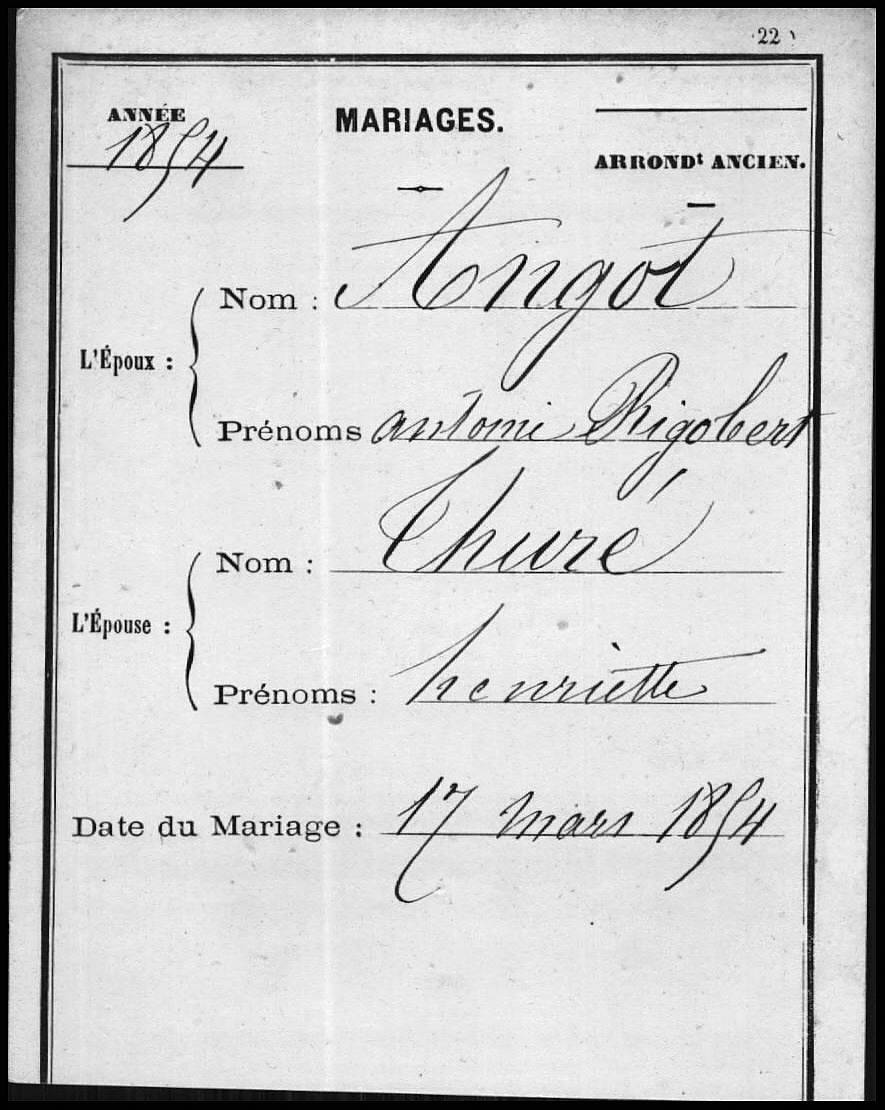 22
ANNÉE
1854
MARIAGES.
ARRONDt ANCIEN.
L'Époux :
Nom : Angot
Prénoms antoini Rigobert
L'Épouse :
Nom : Thuré
Prénoms : henriette
Date du Mariage : 17 mars 1854